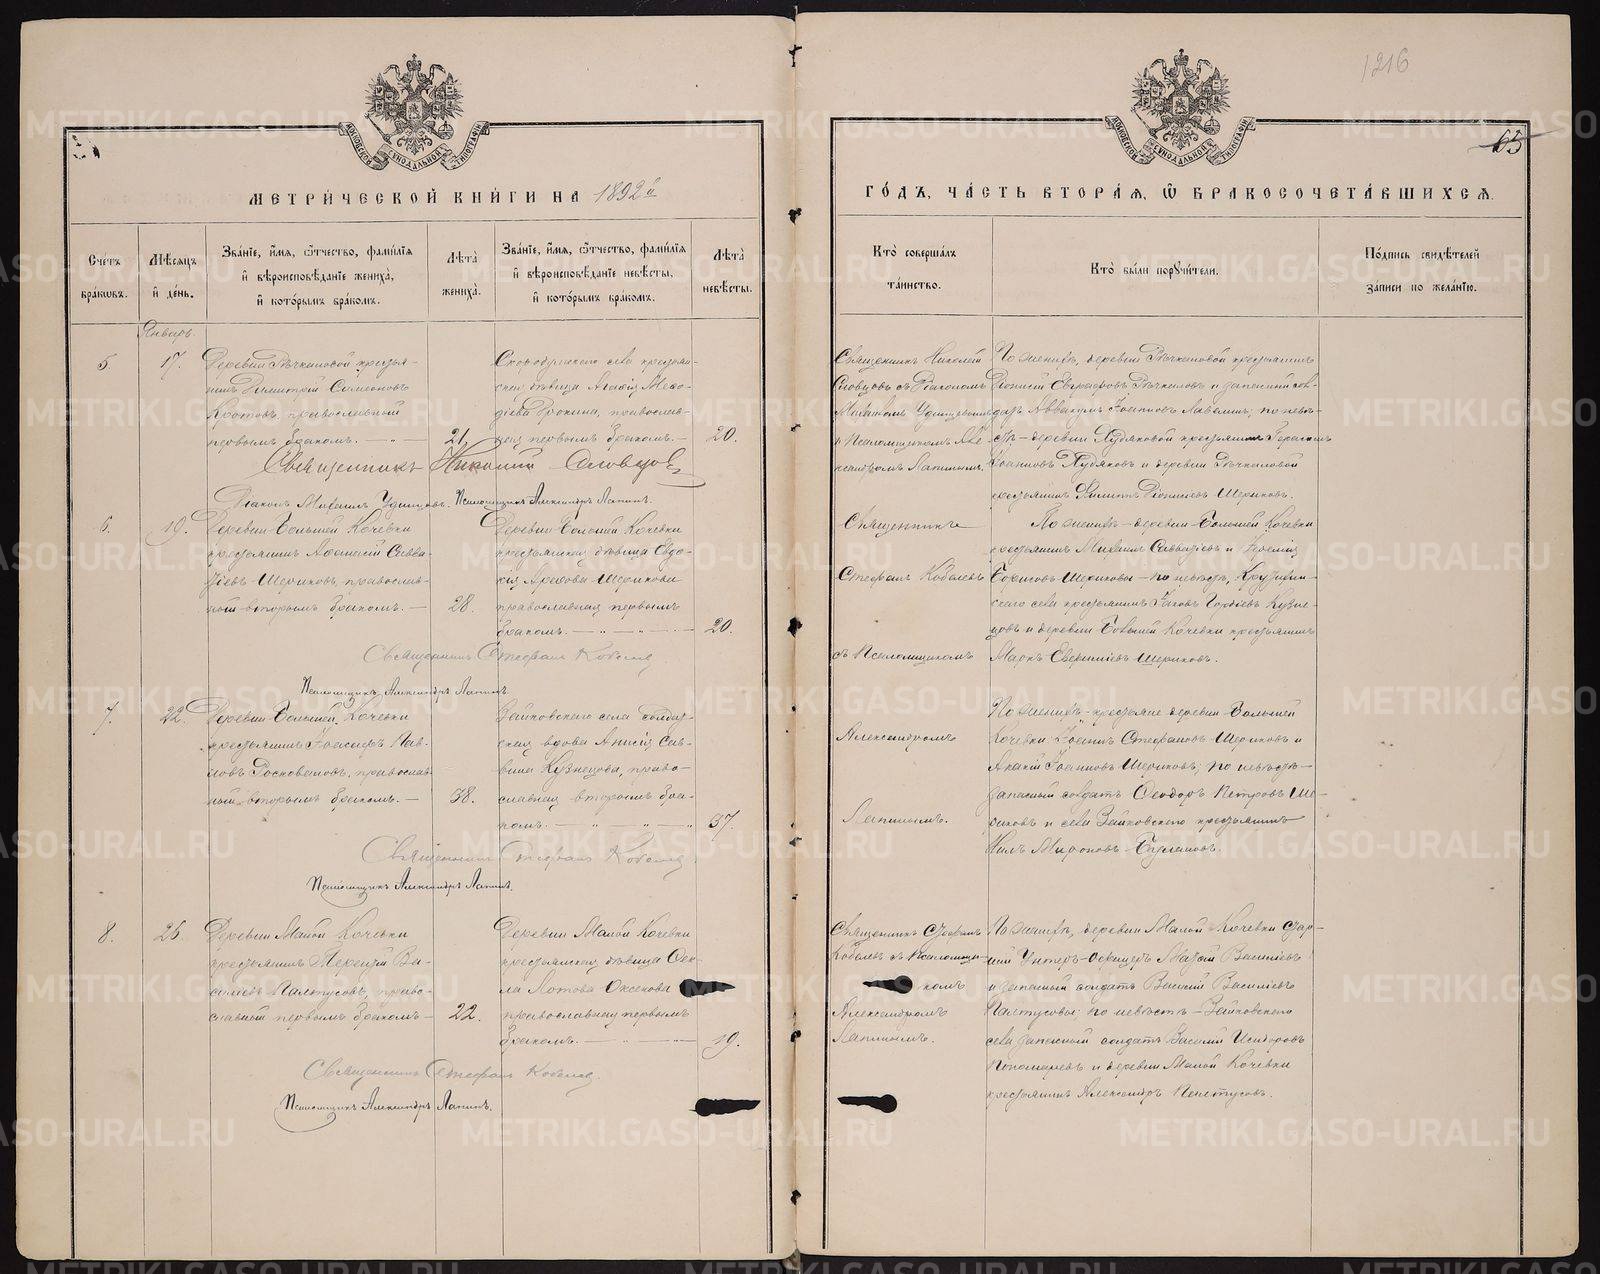 1216
65
МОСКОВСКОЙ СѴНОДАЛЬНОЙ ТИПОГРАФІИ
МОСКОВСКОЙ СѴНОДАЛЬНОЙ ТИПОГРАФІИ
МЕТРИЧЕСКОЙ КНИГИ НА 1892й
ГОДЪ, ЧАСТЬ ВТОРАЯ, Ѡ БРАКОСОЧЕТАВШИХСЯ.
Счетъ браковъ.
Мѣсяцъ и день.
Званіе, имя, отчество, фамилія
и вѣроисповѣданіе жениха,
и которымъ бракомъ.
Лѣта жениха.
Званіе, имя, отчество, фамилія
и вѣроисповѣданіе невѣсты,
и которымъ бракомъ.
Лѣта невѣсты.
Кто совершалъ
таинство.
Кто были поручители.
Подпись свидѣтелей
записи по желанію.
Январь.
5 17.
Деревни Рѣчкаловой крестья-
нинъ Димитрій Симеоновъ
Кротовъ, православный
первымъ бракомъ.
21.
Скородумскаго села крестьян-
ская дѣвица Агаѳія Меѳо-
діева, православ-
ная первымъ бракомъ.
20.
Священникъ Николай
Словцовъ съ Діакономъ
Михаиломъ Удинцовымъ
и Псаломщикомъ Але-
ксандромъ Лапинымъ.
По женихѣ, деревни Рѣчкаловой крестьянинъ
Діонисій Евграфовъ Рѣчкаловъ и запасный сол-
датъ Аввакумъ Іоанновъ; по невѣ-
стѣ – деревни Худяковой крестьянинъ Герасимъ
Іоанновъ Худяковъ и деревни Рѣчкаловой
крестьянинъ Филиппъ Діонисіевъ Шориковъ.
Священникъ Николай Словцовъ
Діаконъ Михаилъ Удинцовъ. Псаломщикъ Александръ Лапинъ.
6. 19.
Деревни Большей Кочевки
крестьянинъ Аѳанасій Савва-
тіевъ Шориковъ, православ-
ный вторымъ бракомъ.
28.
Деревни Большей Кочевки
крестьянская дѣвица Евдо-
кія Арефова Шорикова
православная первымъ
бракомъ.
20.
Священникъ
Стефанъ Кобелевъ
съ Псаломщикомъ
Александромъ
Лапинымъ.
По женихѣ – деревни Большей Кочевки
крестьянинъ Михаилъ Савватіевъ и Іеремія
Борисовъ Шориковы – по невѣстѣ,
села крестьянинъ Іаковъ Гордѣевъ Кузне-
цовъ и деревни Большей Кочевки крестьянинъ
Маркъ Шориковъ.
Священникъ Стефанъ Кобелевъ
Псаломщикъ Александръ Лапинъ.
7. 22.
Деревни Большей Кочевки
крестьянинъ Іоасафъ Пав-
ловъ, православ-
ный вторымъ бракомъ.
38.
Зайковскаго села солдат-
ская вдова Анисія Сав-
вина Кузнецова, право-
славная вторымъ бра-
комъ.
37.
По женихѣ – крестьяне деревни Большей
Кочевки Іоаннъ Стефановъ Шориковъ и
Акакій Іоанновъ Шориковъ; по невѣстѣ –
запасный солдатъ Ѳеодоръ Петровъ Шо-
риковъ и села Зайковскаго крестьянинъ
Нилъ Мироновъ Булановъ.
Священникъ Стефанъ Кобелевъ
Псаломщикъ Александръ Лапинъ.
8. 26.
Деревни Малой Кочевки
крестьянинъ Терентій Ва-
силіевъ Палтусовъ, право-
славный первымъ бракомъ
22.
Деревни Малой Кочевки
крестьянская дѣвица Ѳек-
ла Лотова Оксенова
православная первымъ
бракомъ.
19.
Священникъ Стефанъ
Кобелевъ съ Псаломщи-
комъ
Александромъ
Лапинымъ.
По женихѣ, деревни Малой Кочевки стар-
шій унтеръ-офицеръ Матѳій Василіевъ
и запасный солдатъ Василій Василіевъ
Палтусовы; по невѣстѣ – Зайковскаго
села запасный солдатъ Василій Исидоровъ
Пономаревъ и деревни Малой Кочевки
крестьянинъ Александръ Палтусовъ.
Священникъ Стефанъ Кобелевъ.
Псаломщикъ Александръ Лапинъ.
METRIKI.GASO-URAL.RU